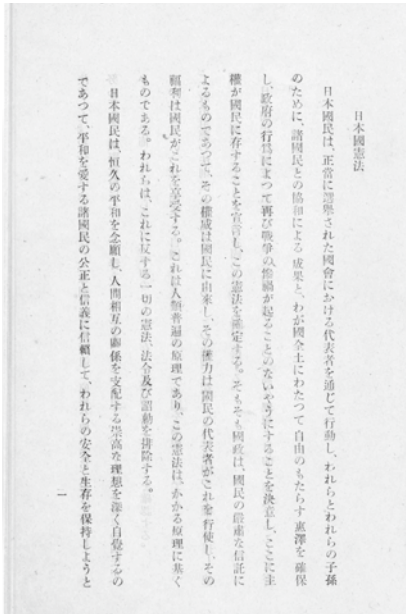 日本國憲法
日本國民は、正當に選擧された國會における代表者を通じて行動し、われらとわれらの子孫
のために、諸國民との協和による成果と、わが國全土にわたつて自由のもたらす惠澤を確保
し、政府の行爲によつて再び戰爭の慘禍が起ることのないやうにすることを決意し、ここに主
權が國民に存することを宣言し、この憲法を確定する。そもそも國政は、國民の嚴肅な信託に
よるものであつて、その權威は國民に由來し、その權力は國民の代表者がこれを行使し、その
福利は國民がこれを享受する。これは人類普遍の原理であり、この憲法は、かかる原理に基く
ものである。われらは、これに反する一切の憲法、法令及び詔勅を排除する。
日本國民は、恒久の平和を念願し、人間相互の關係を支配する崇高な理想を深く自覺するの
であつて、平和を愛する諸國民の公正と信義に信賴して、われらの安全と生存を保持しようと
一